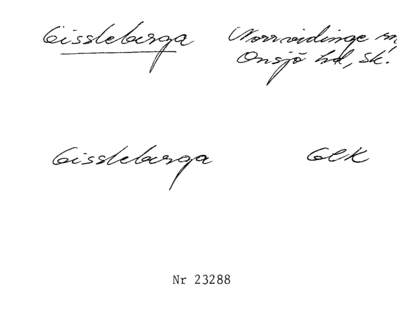 Gissleberga Norrvidinge sn,
Onsjö hd, Sk.
Gissleberga GEK
Nr 23288